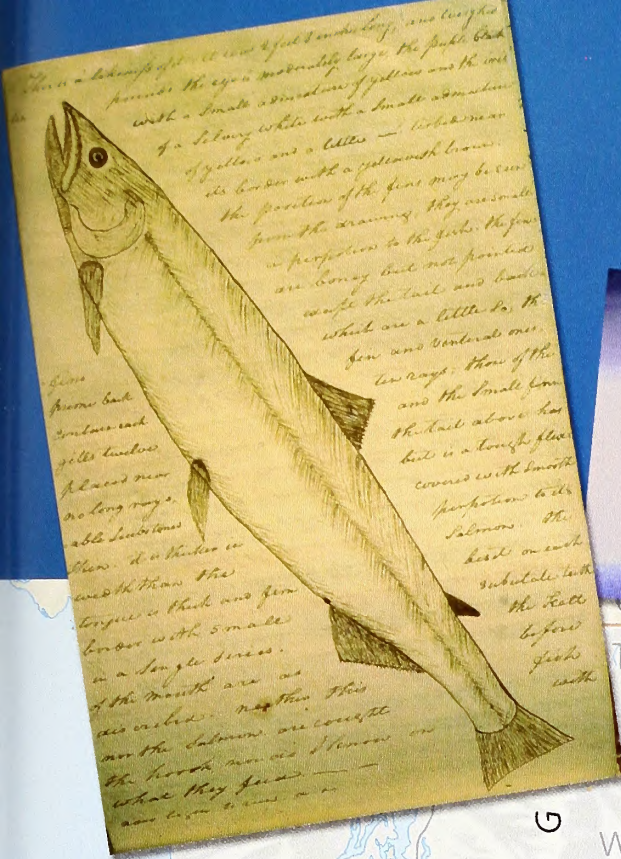 This is a likeness of it; it was 2 feet 8 inches long, and weighed
pounds. the eye is moderately large, the puple black
with a small admixture of yellow and the iris
of a silvery white with a small admixture
of yellow and a little — terbed near
its border with a yelowish brown.
the position of the fins may be seen
from the drawing, they are small
in perpotion to the fish. the fins
are boney but not pointed
except the tail and back
which are a little so, the
fin and ventral ones
ten rays; those of the
and the small fin
the tail above has
but is a tough flex
covered with smooth
perpotion to its
salmon. the
on each
substile teeth
the
before
fish
with
fins
prime back
contain each
gills twelve
placed near
no long rays.
able substance
skin. it is thicker in
width than the
tongue is thick and firm
border with small
in a single series.
of the mouth are as
discribed. neither this
nor the salmon are caught
the hook, nor do I know on
what they feed — —
G
W